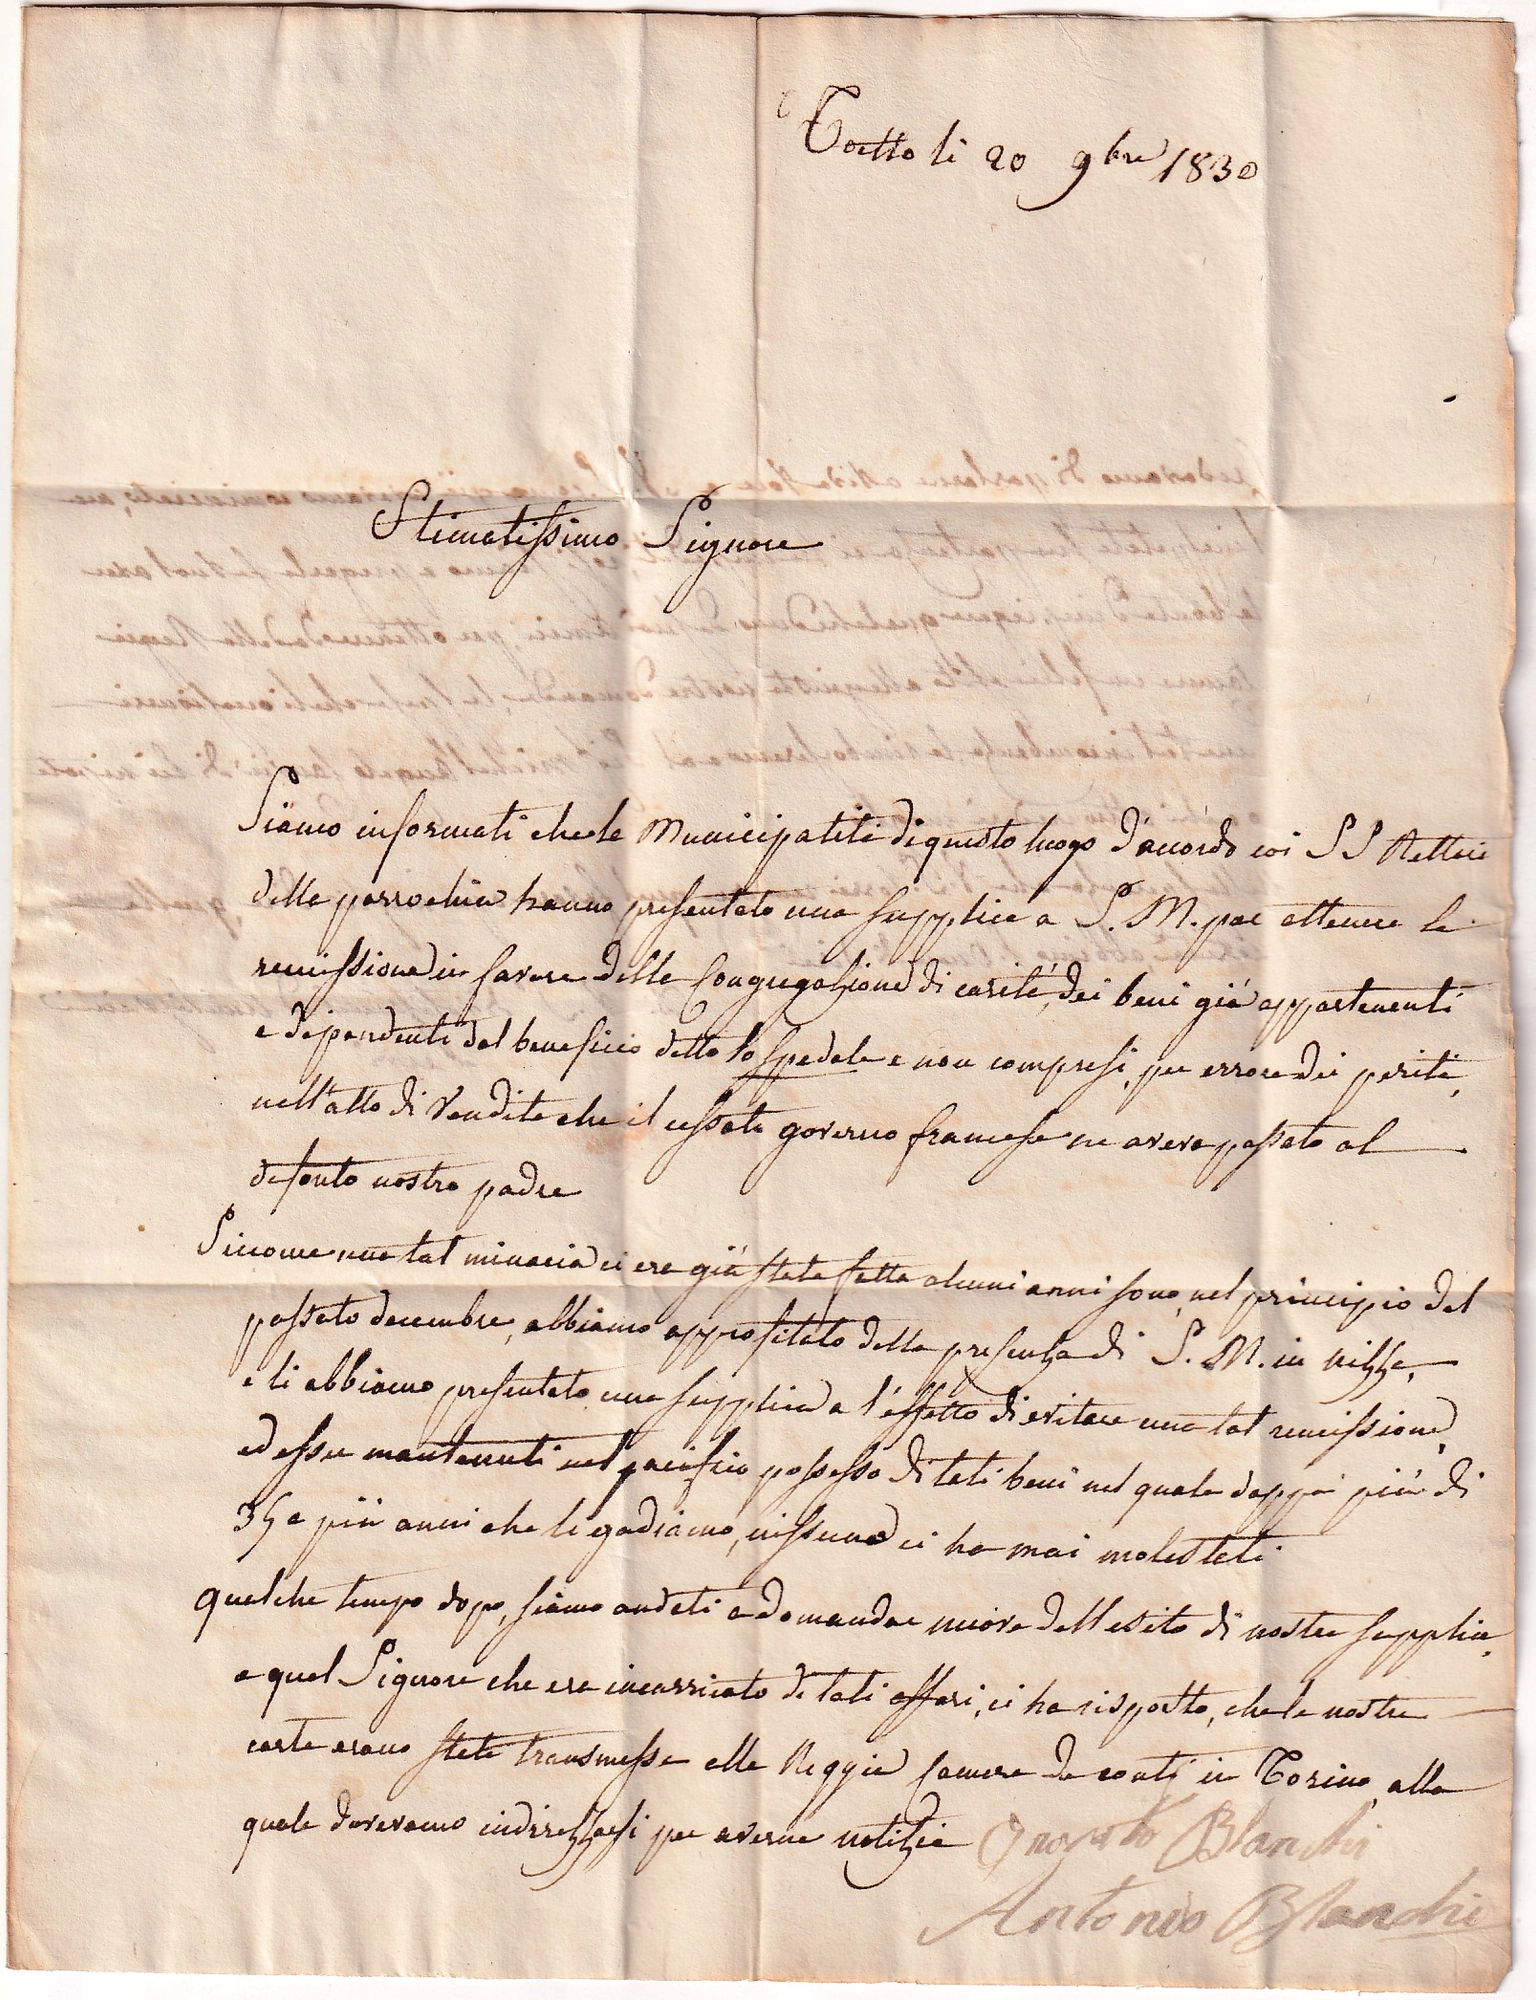 Toetto li 20 9bre 1830
Stimatissimo Signore
Siamo informati che la Municipalità di questo luogo d'accordo coi SS Rettori
della parrochia hanno presentato una supplica a S. M. per ottenere la
remissione in favore della Congregazione di carità, dei beni già appartenenti
e dipendenti dal beneficio detto lo spedale e non compresi, per errore dei periti,
nell'atto di vendita che il cessato governo francese ne aveva passato al
defonto nostro padre
Siccome una tal minacia ci era già stata fatta alcuni anni sono, nel principio del
passato decembre, abbiamo approfitato della presenza di S. M. in nizza,
e li abbiamo presentato una supplica a l'effetto di evitare una tal remissione,
ed esser mantenuti nel pacifico possesso di tali beni nel quale doppo più di
35 e più anni che li godiamo, nissuno ci ha mai molestati
qualche tempo dopo, siamo andati a domandar nuova dell esito di nostra supplica,
a quel Signore che era incarricato di tali affari, ci ha risposto, che le nostre
carte erano state transmesse alla Reggia Camera de conti in Torino, alla
quale dovevamo indirezzarsi per averne notizia Blanchi
Antonio Blanchi